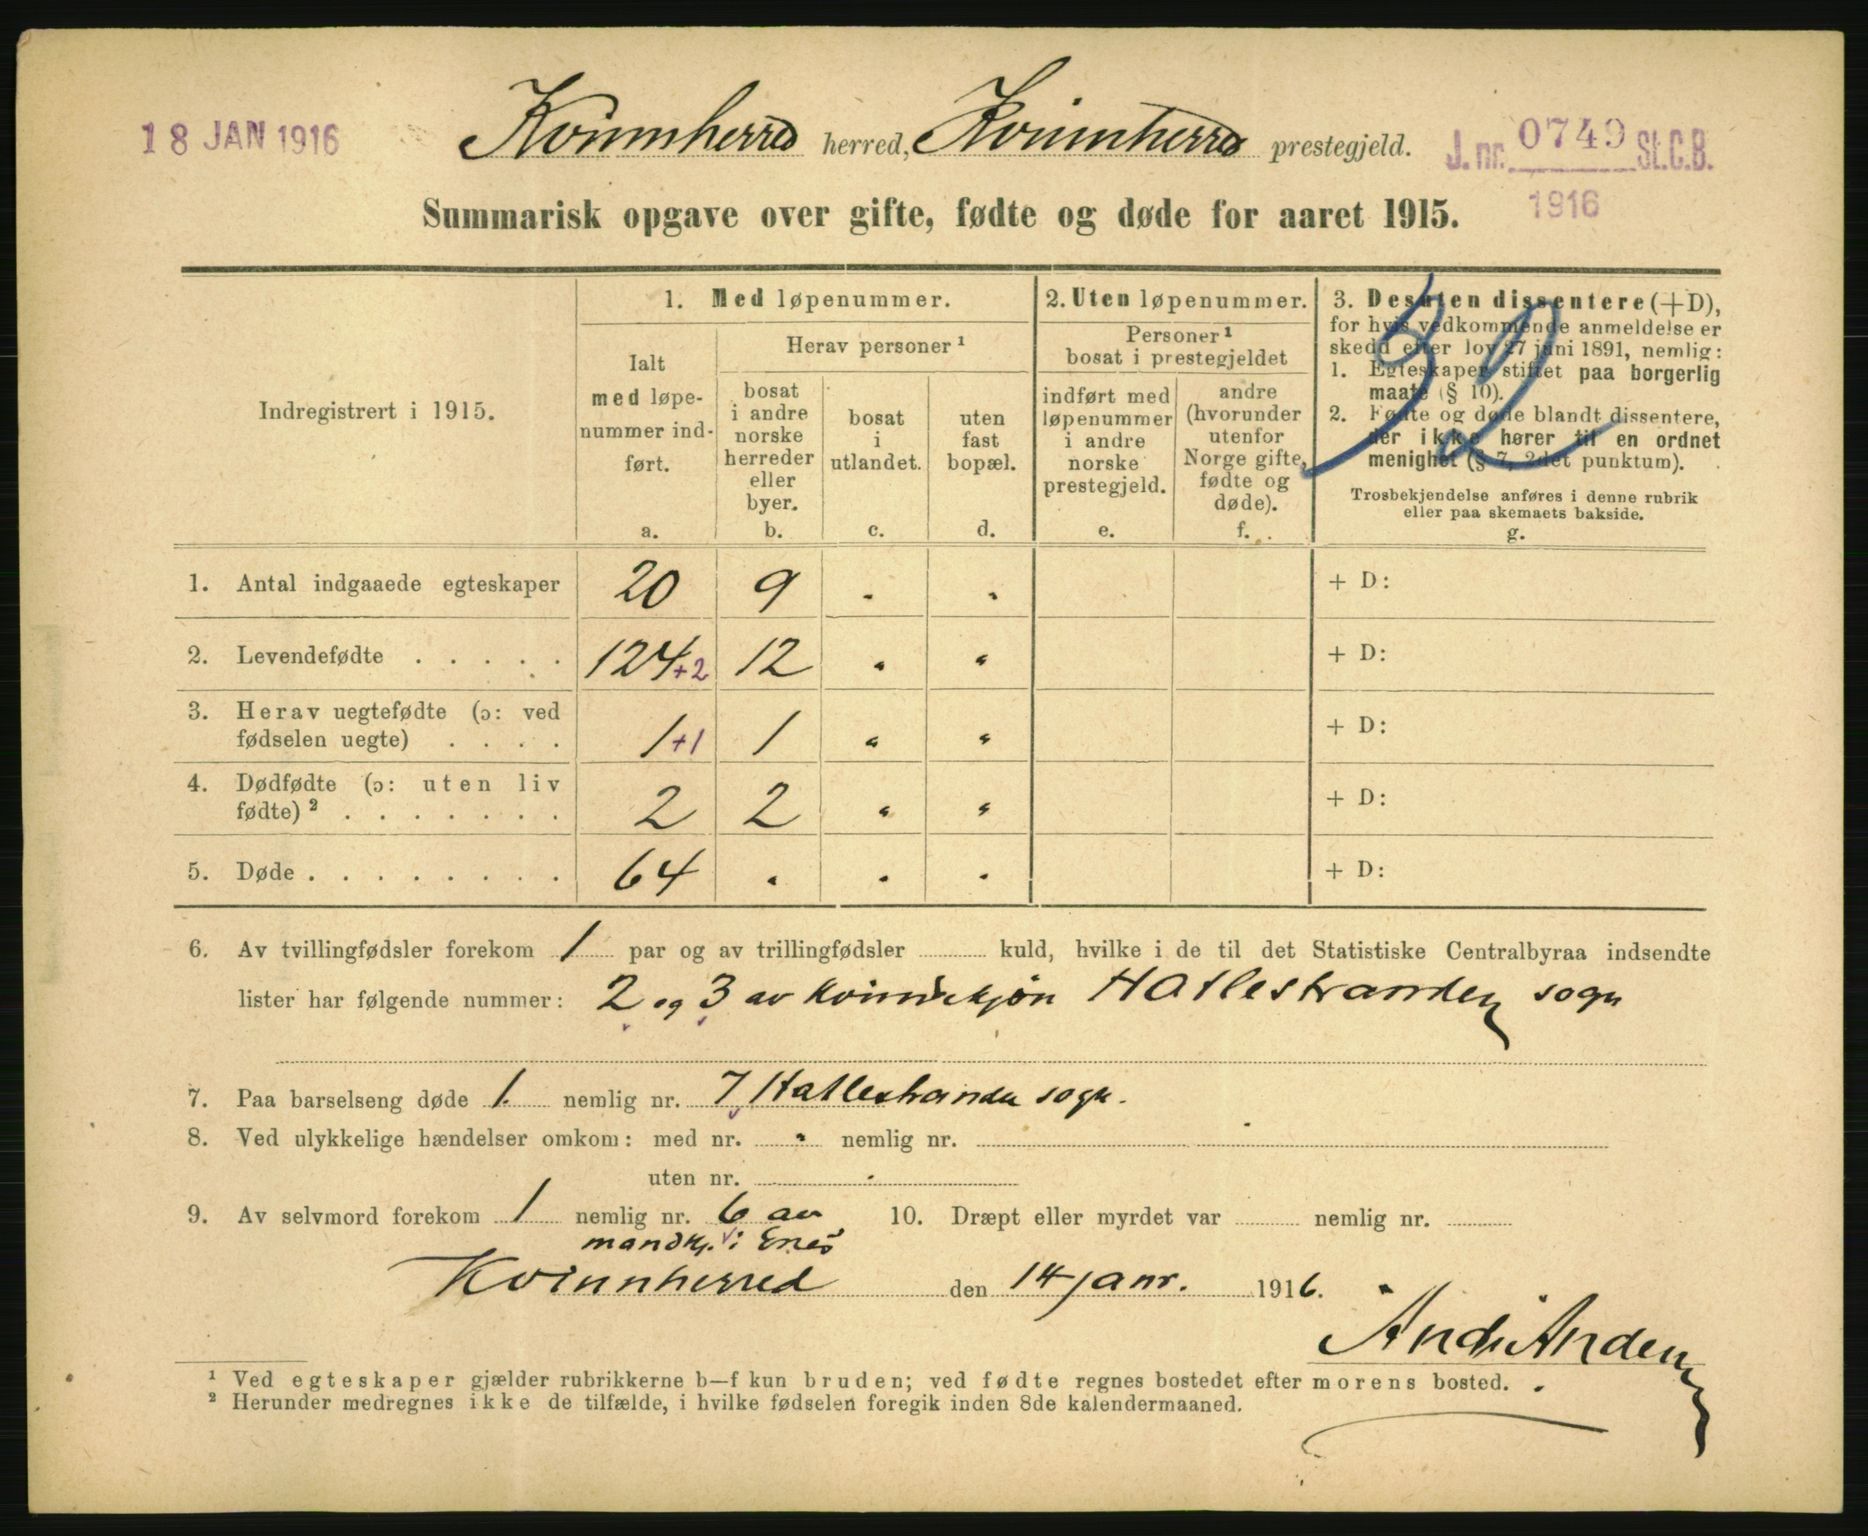 18 JAN 1916
Kvinnherred herred, Kvinnherred prestegjeld.
J. nr. 0749 St.C.B.
1916
Summarisk opgave over gifte, fødte og døde for aaret 1915.
Indregistrert i 1915.
1. Med løpenummer.
Ialt
med løpe-
nummer ind-
ført.
a.
Herav personer ¹
bosat
i andre
norske
herreder
eller
byer.
b.
bosat
i
utlandet.
c.
uten
fast
bopæl.
d.
2. Uten løpenummer.
Personer ¹
bosat i prestegjeldet
indført med
løpenummer
i andre
norske
prestegjeld.
e.
andre
(hvorunder
utenfor
Norge gifte,
fødte og
døde).
f.
3. Desuten dissentere (+D),
for hvis vedkommende anmeldelse er
skedd efter lov 27 juni 1891, nemlig:
1. Egteskaper stiftet paa borgerlig
maate (§ 10).
2. Fødte og døde blandt dissentere,
der ikke hører til en ordnet
menighet (§ 7, 2det punktum).
Trosbekjendelse anføres i denne rubrik
eller paa skemaets bakside.
g.
1. Antal indgaaede egteskaper 20 9 . . + D:
2. Levendefødte . . . . . 124 +2 12 " " + D:
3. Herav uegtefødte (ɔ: ved
fødselen uegte) . . . . 1 +1 1 " " + D:
4. Dødfødte (ɔ: uten liv
fødte) ² . . . . . . . 2 2 " " + D:
5. Døde . . . . . . . . . 64 . . . + D:
6. Av tvillingfødsler forekom 1 par og av trillingfødsler kuld, hvilke i de til det Statistiske Centralbyraa indsendte
lister har følgende nummer: 2 og 3 av kvindekjøn Hatlestranden sogn
7. Paa barselseng døde 1. nemlig nr. 7 Hatlestranden sogn.
8. Ved ulykkelige hændelser omkom: med nr. " nemlig nr. .
uten nr. .
9. Av selvmord forekom 1 nemlig nr. 6 av 10. Dræpt eller myrdet var nemlig nr.
mandkj. i Enes
Kvinnherred den 14 janr. 1916.
¹ Ved egteskaper gjælder rubrikkerne b—f kun bruden; ved fødte regnes bostedet efter morens bosted.
² Herunder medregnes ikke de tilfælde, i hvilke fødselen foregik inden 8de kalendermaaned.